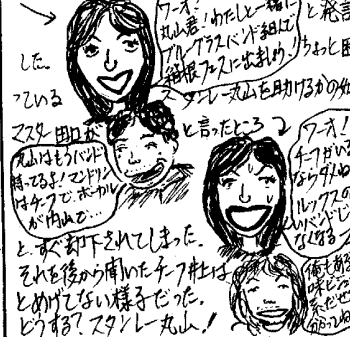 ワーオ!
丸山君!わたしと一緒に
ブルーグラスバンド組んで
箱根フェスに出ましょう!
と発言
した。
ちょっと困
っている
スタンレー丸山を助けるかの如
マスター田口が
と言ったところ
丸山はもうバンド
持ってるよ!マンドリン
はチーフで、ボーカル
が内山で…
ワーオ!
チーフがいる
ならダメね
ルックスの
いいバンドじ
なくなる
と、すぐ却下されてしまった。
それを後から聞いたチーフ井上は
とめげてない様子だった。
どうする?スタンレー丸山!
俺もある
味ビジ
系だぜ
分かってね